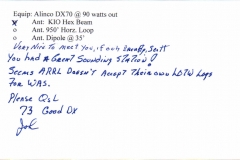 Equip: Alinco DX70 @ 90 watts out
x Ant: KIO Hex Beam
o Ant. 950' Horz. Loop
o Ant. Dipole @ 35'
Very Nice to meet you, if only briefly, Scott
You had a Great Sounding Station!
Seems ARRL Doesn't Accept Their own LOTW Logs
For WAS.
Please QSL
73 Good Dx
Joe